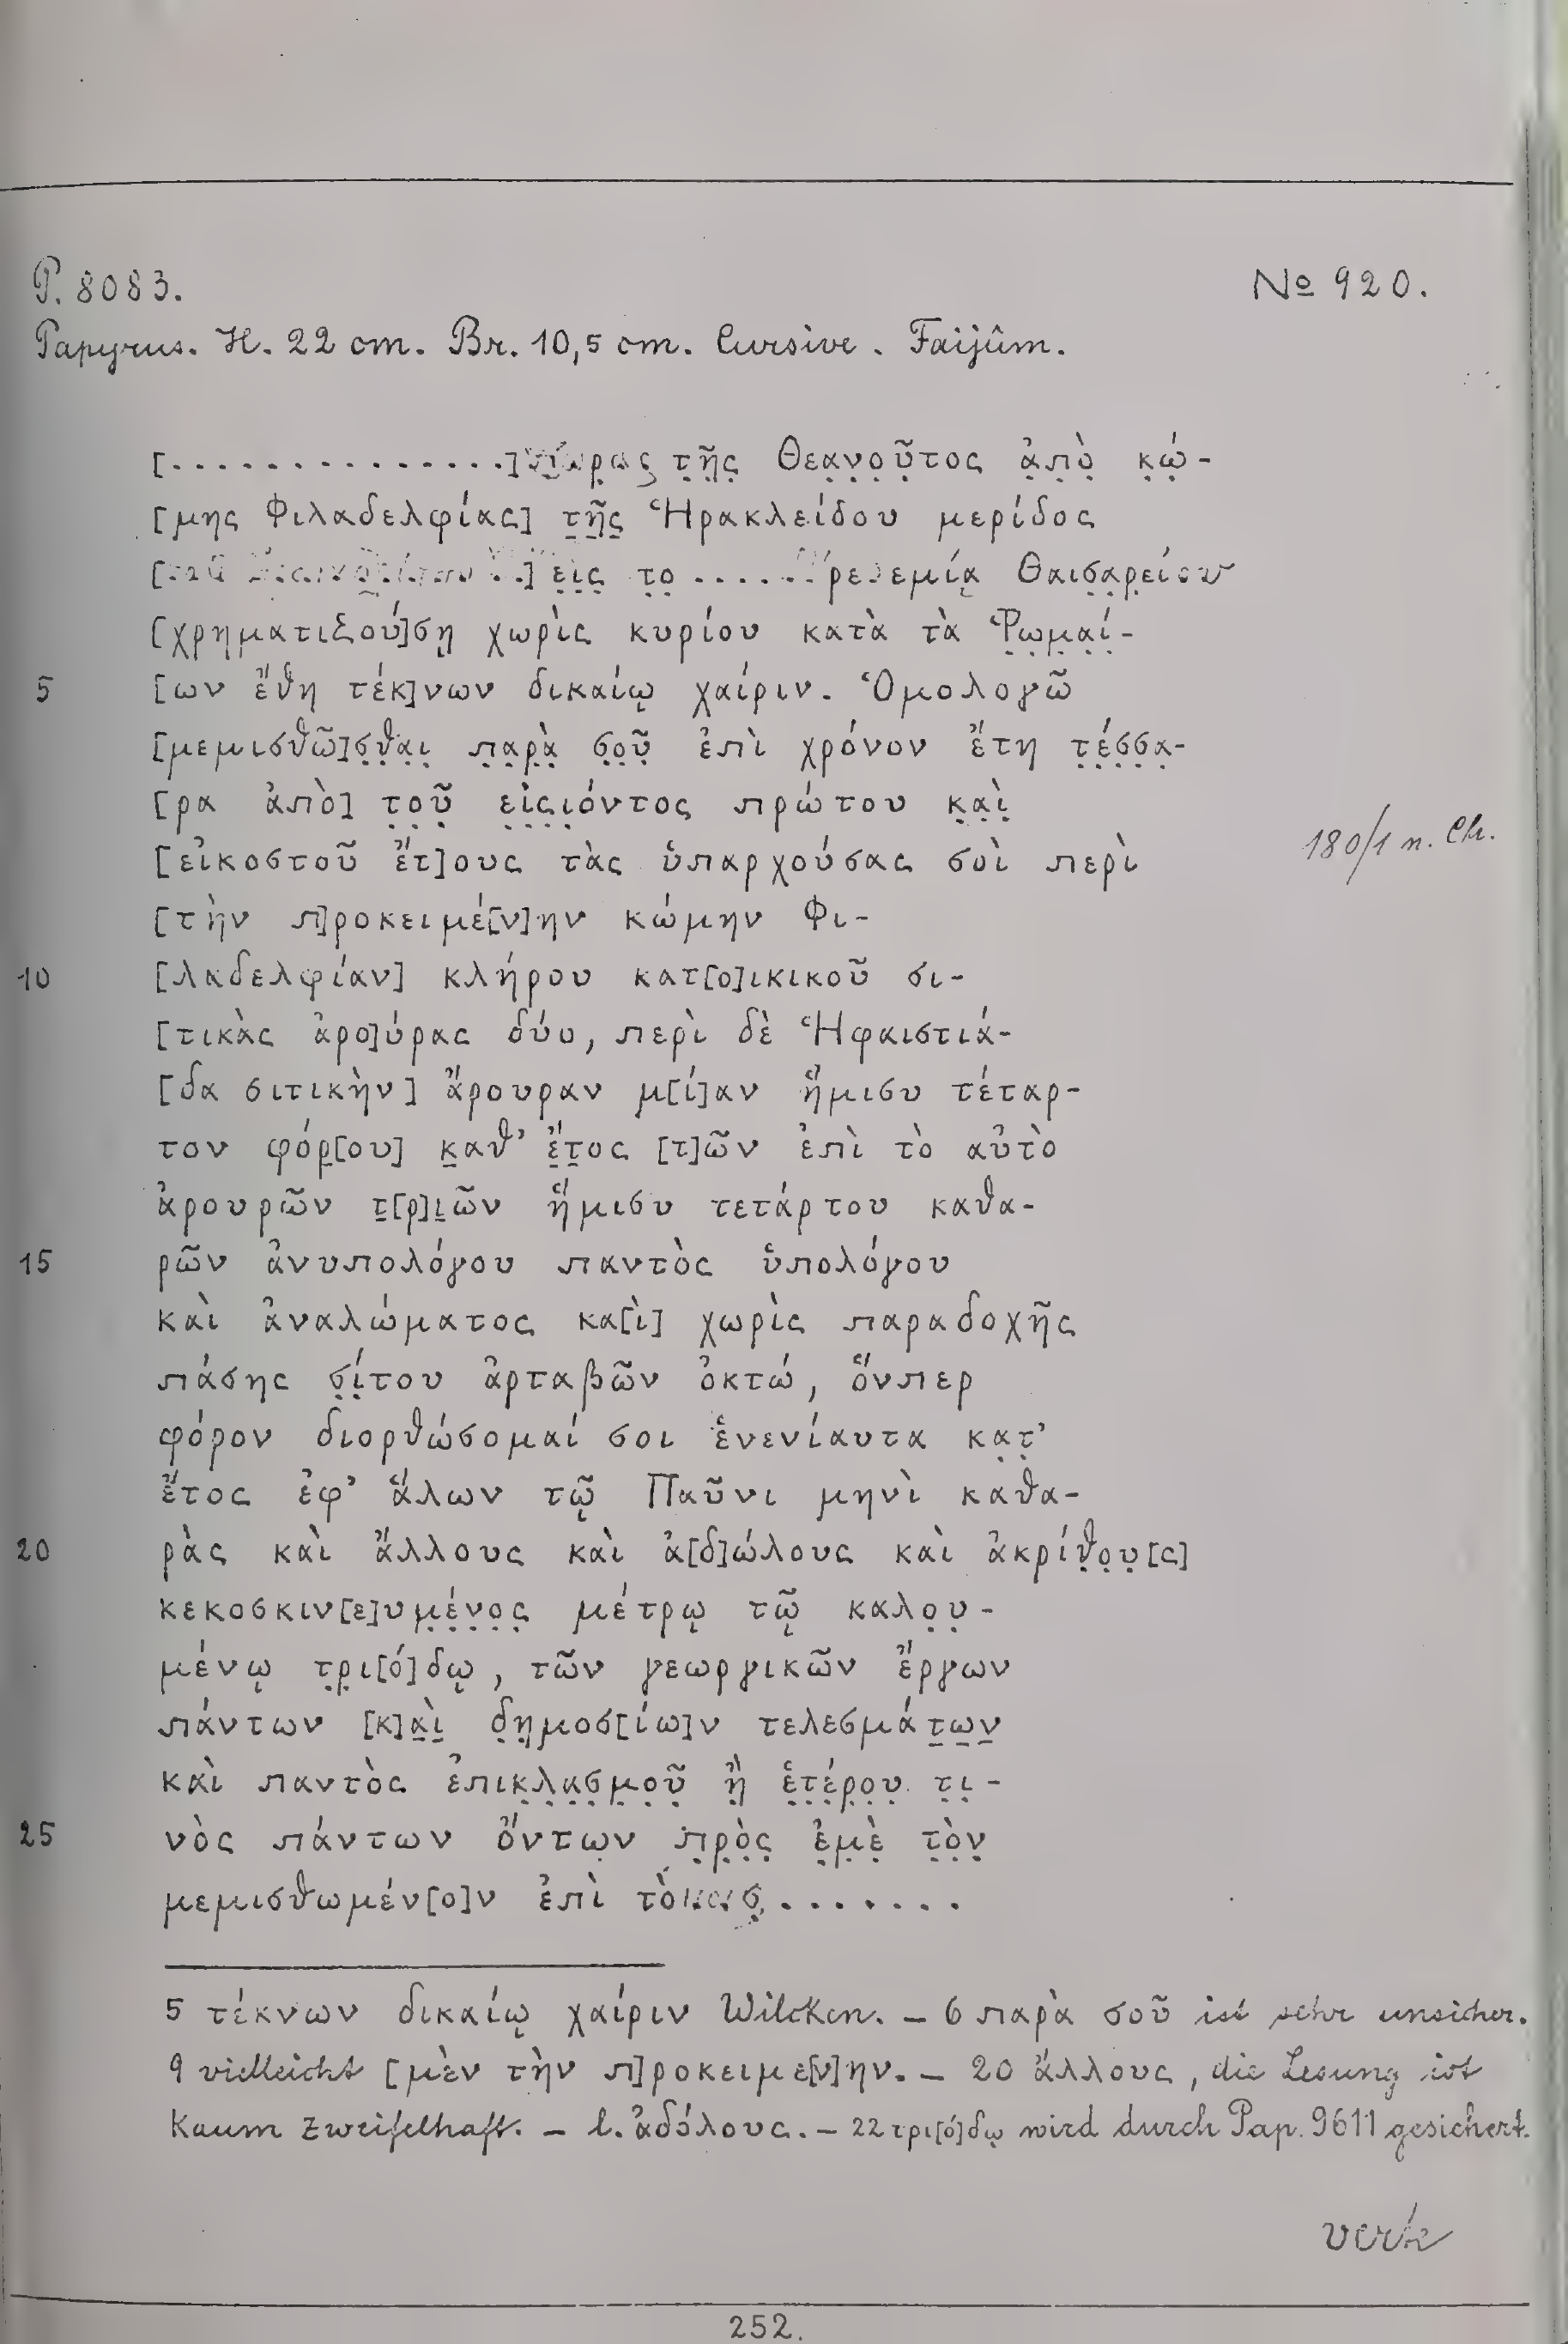 P. 8083. № 920.
Papyrus. H. 22 cm. Br. 10,5 cm. Cursive. Faijûm.
[...............] τ̣ῆ̣ς̣ Θεα̣ν̣ο̣ῦ̣τος ἀ̣π̣ὸ̣ κ̣ώ̣-
[μης Φιλαδελφίας] τ̣ῆ̣ς̣ Ἡρακλείδου μερίδος
ε̣ἰ̣ς̣ τ̣ο̣ Θαισα̣ρ̣είου
[χρηματιζού]σῃ χωρὶς κυρίου κατὰ τὰ Ῥ̣ω̣μ̣α̣ί̣-
5 [ων ἔθη τέκ]νων δικαίῳ χαίριν. Ὁμολογῶ
[μεμισθῶ]σ̣θ̣α̣ι̣ π̣α̣ρ̣ὰ̣ σ̣ο̣ῦ̣ ἐπὶ χρόνον ἔτη τ̣έ̣σ̣σ̣α̣-
[ρα ἀπὸ] τ̣ο̣ῦ̣ ε̣ἰ̣ς̣ι̣όντος πρώτου κ̣α̣ὶ̣
[εἰκοστοῦ ἔτ]ους τὰς ὑπαρχούσας σοὶ περὶ 180/1 n. Ch.
[τὴν π]ροκειμέ[ν]ην κώμην Φι-
10 [λαδελφίαν] κλήρου κατ[ο]ικικοῦ σι-
[τικὰς ἀρο]ύρας δύο, περὶ δὲ Ἡφαιστιά-
[δα σιτικὴν] ἄρουραν μ[ί]αν ἥμισυ τέταρ-
τον φόρ̣[ου] κ̣αθ’ ἔ̣τ̣ος [τ]ῶν ἐπὶ τὸ αὐτὸ
ἀρουρῶν τ̣[ρ]ι̣ῶν ἥμισυ τετάρτου καθα-
15 ρῶν ἀνυπολόγου παντὸς ὑπολόγου
καὶ ἀναλώματος κα[ὶ] χωρὶς παραδοχῆς
πάσης σ̣ί̣του ἀρταβῶν ὀκτώ, ὅνπερ
φόρον διορθώσομαί σοι ἐνενίαυτα κα̣τ̣’
ἔτος ἐφ’ ἅλων τῷ Παῦνι μηνὶ καθα-
20 ρὰς καὶ ἄλλους καὶ ἀ[δ]ώλους καὶ ἀκρίθ̣ο̣υ̣[ς]
κεκοσκιν[ε]υμ̣έ̣ν̣ο̣ς̣ μέτρῳ τῷ καλο̣υ̣-
μένῳ τ̣ρ̣ι[ό]δῳ, τῶν γεωργικῶν ἔργων
πάντων [κ]α̣ὶ̣ δ̣η̣μοσ[ίω]ν τελεσμάτ̣ω̣ν̣
καὶ παντὸς ἐπικ̣λ̣α̣σ̣μ̣ο̣ῦ̣ ἢ̣ ἑ̣τ̣έ̣ρ̣ο̣υ̣ τ̣ι̣-
25 νὸς πάντων ὄντων π̣ρ̣ὸ̣ς̣ ἐ̣μ̣ὲ̣ τ̣ὸ̣ν̣
μεμισθωμέν[ο]ν ἐπὶ .......
5 τέκνων δικαίῳ χαίριν Wilcken. – 6 παρὰ σοῦ ist sehr unsicher.
9 vielleicht [μὲν τὴν π]ροκειμε[ν]ην. – 20 ἄλλους, die Lesung ist
kaum zweifelhaft. – l. ἀδόλους. – 22 τρι[ό]δῳ wird durch Pap. 9611 gesichert.
252.